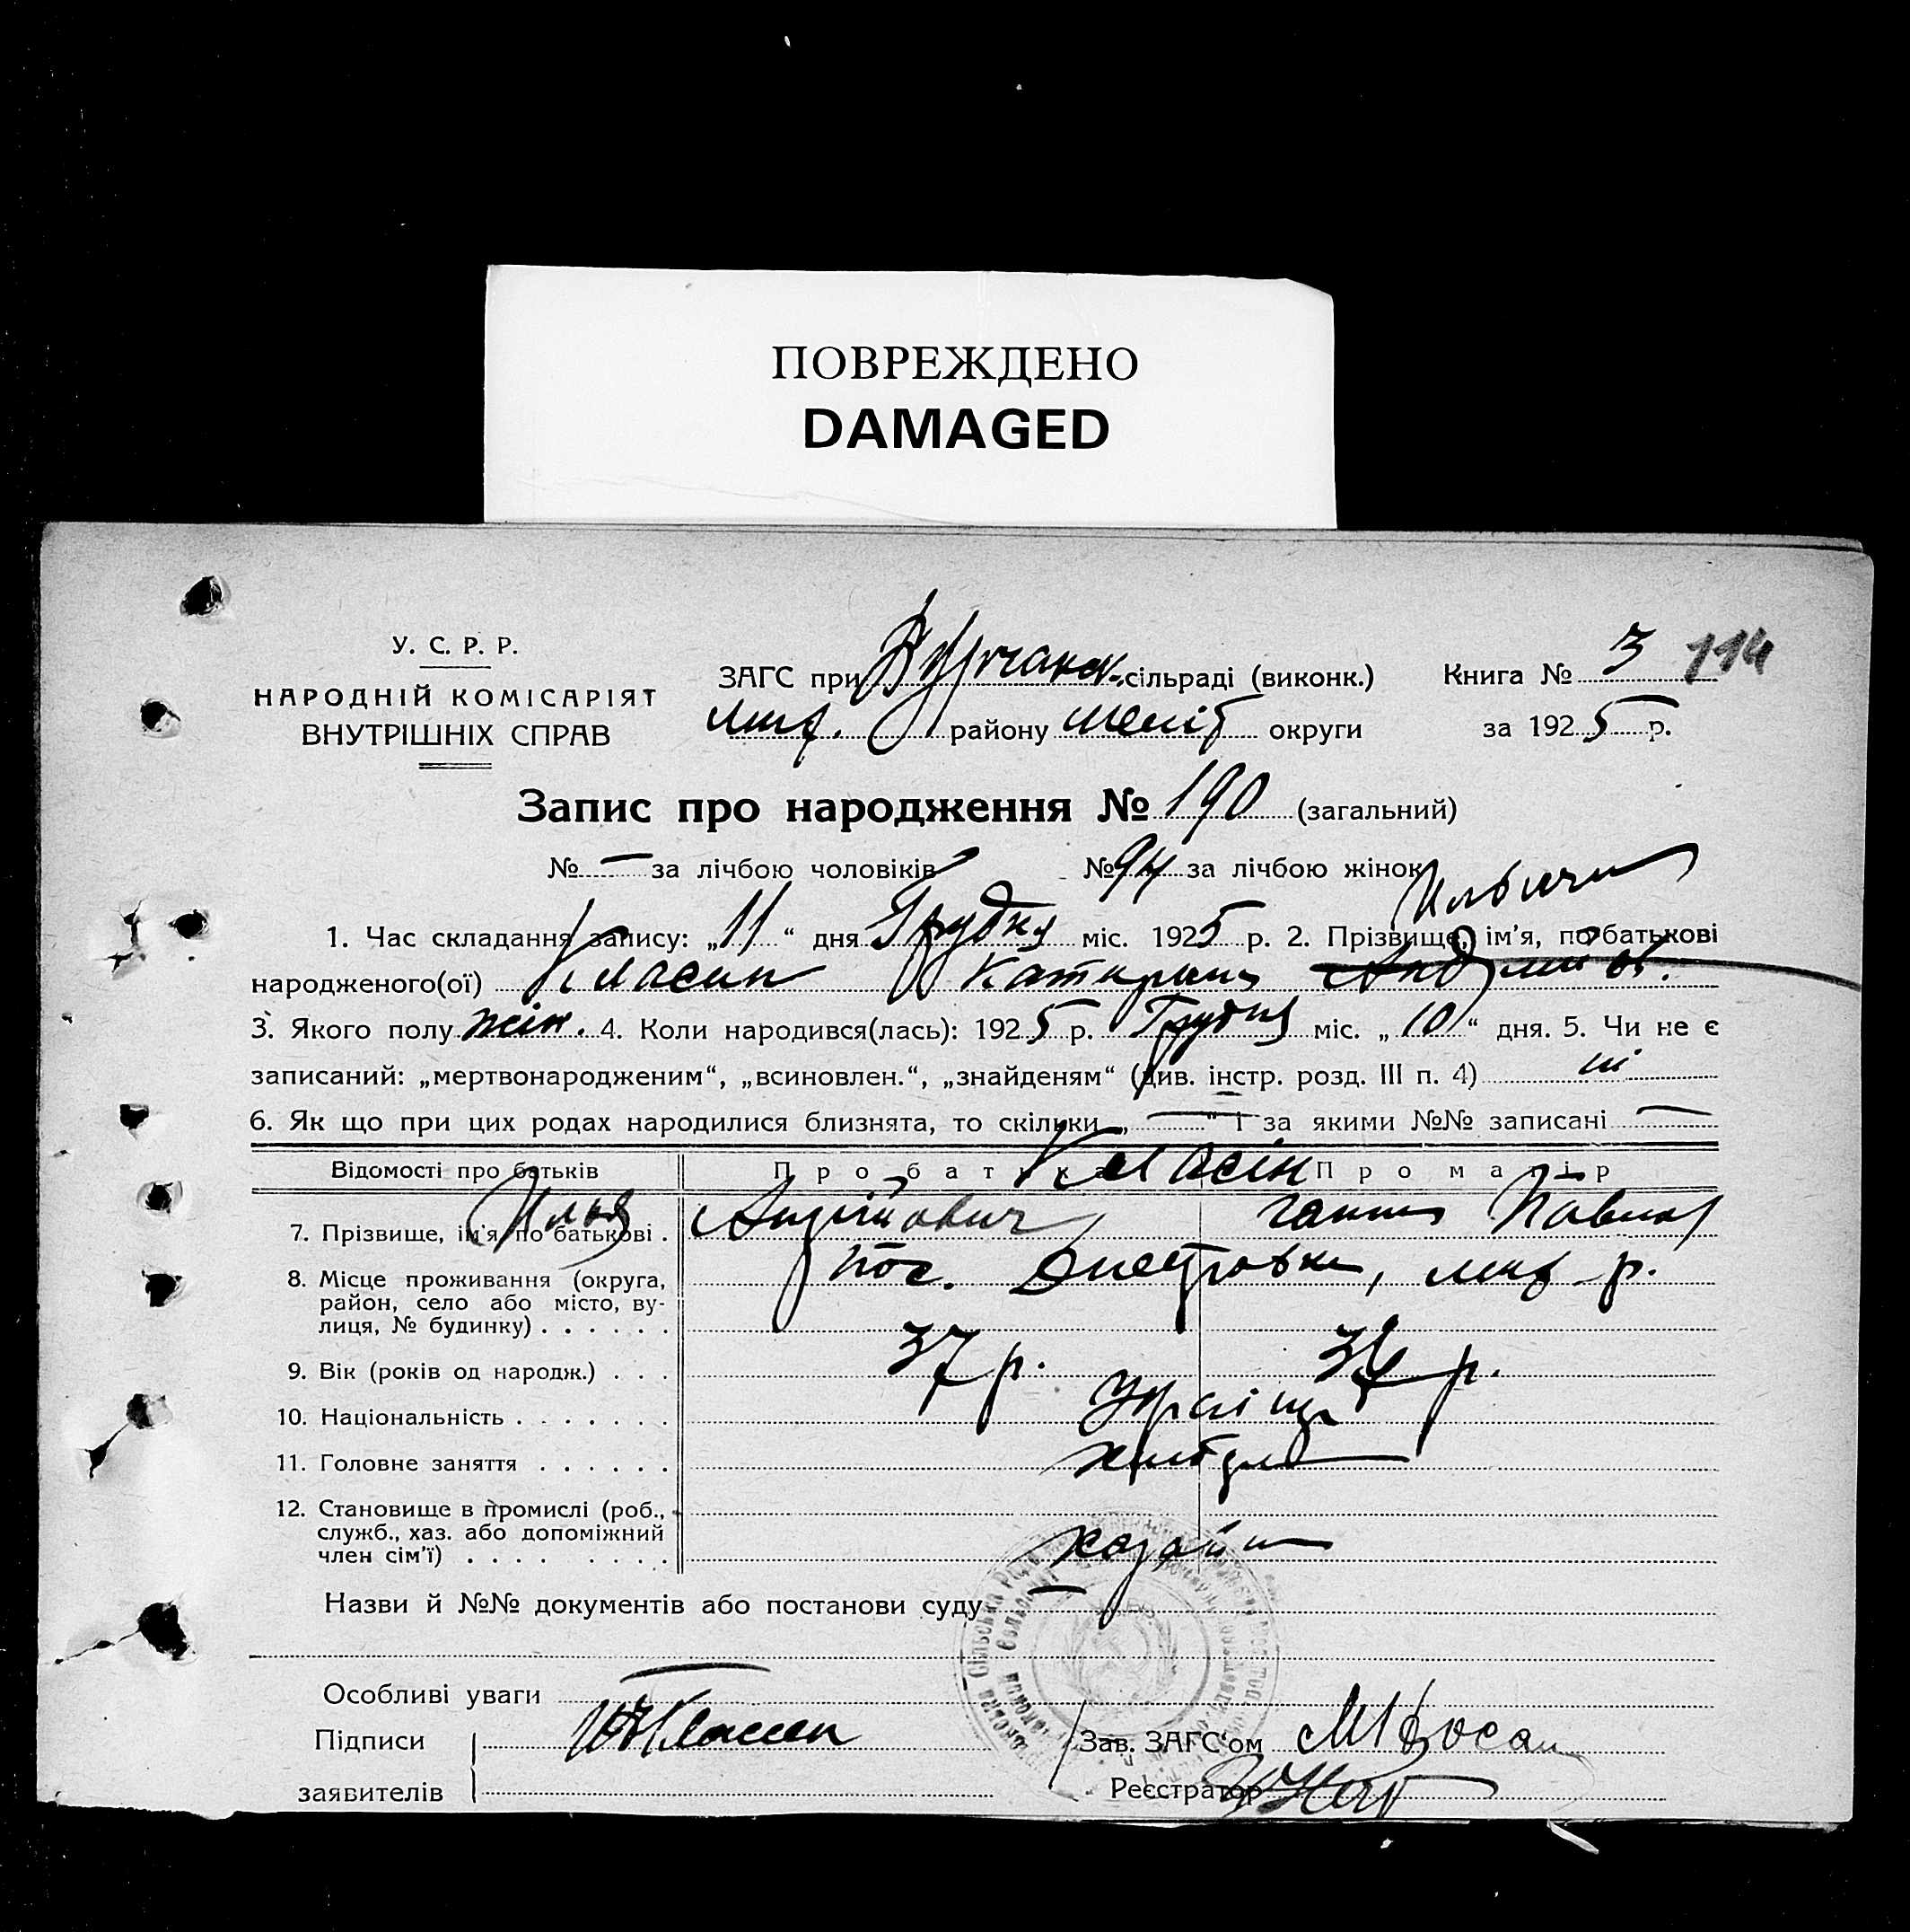 ПОВРЕЖДЕНО
DAMAGED
У. С. Р. Р.
НАРОДНІЙ КОМІСАРІЯТ
ВНУТРІШНІХ СПРАВ
ЗАГС при сільраді (виконк.)
району Меліт округи
Книга № 3 114
за 1925 р.
Запис про народження № 190 (загальний)
№ — за лічбою чоловіків № 94 за лічбою жінок
1. Час складання запису: „11“ дня Грудня міс. 1925 р. 2. Прізвище, ім'я, по батькові
народженого(ої) Класин Катерина
3. Якого полу жін. 4. Коли народився(лась): 1925 р. Грудня міс. „10“ дня. 5. Чи не є
записаний: „мертвонародженим“, „всиновлен.“, „знайденям“ (див. інстр. розд. III п. 4) ні
6. Як що при цих родах народилися близнята, то скільки „—“ і за якими №№ записані —
Відомості про батьків Про батька Про матір
Класін
7. Прізвище, ім'я, по батькові . Илья Андрійович Ганна Павлов
8. Місце проживання (округа, район, село або місто, вулиця, № будинку) . . . . . . пос. Днестровка, р.
9. Вік (років од народж.) . . . 37 р. р.
10. Національність . . . . . . .
11. Головне заняття . . . . . .
12. Становище в промислі (роб., служб., хаз. або допоміжний член сім'ї) . . . . . . . . хазяїн
Назви й №№ документів або постанови суду —
Особливі уваги —
Підписи
заявителів
Зав. ЗАГС'ом
Реєстратор